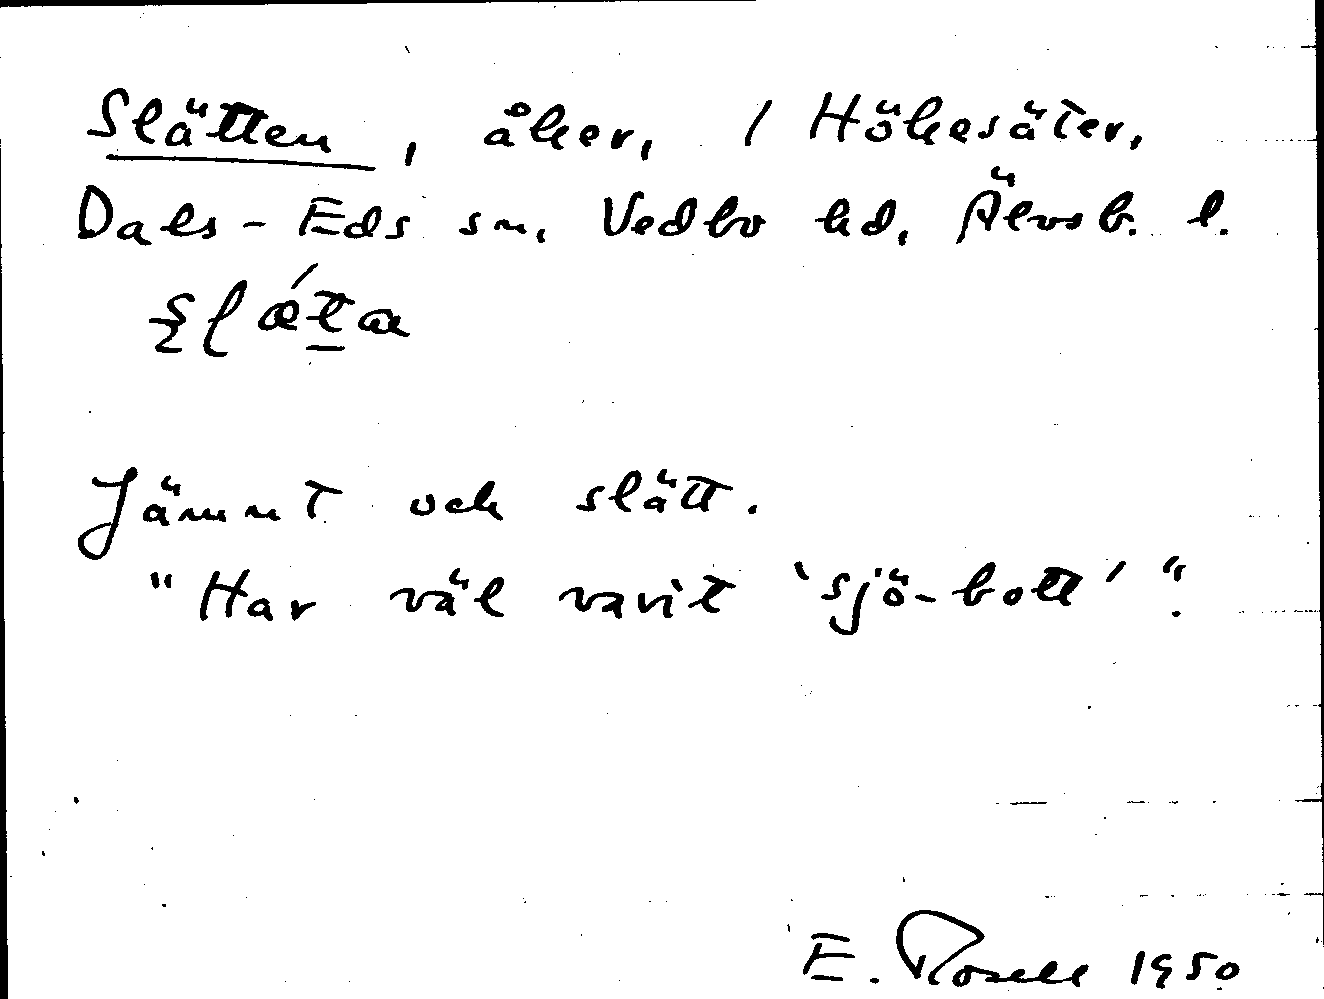 Slätten, åker, / Hökesäter,
Dals-Eds sn, Vedbo hd, Älvsb. l.
Jämnt och slätt.
"Har väl varit 'sjö-bott'".
E. Rosell 1950